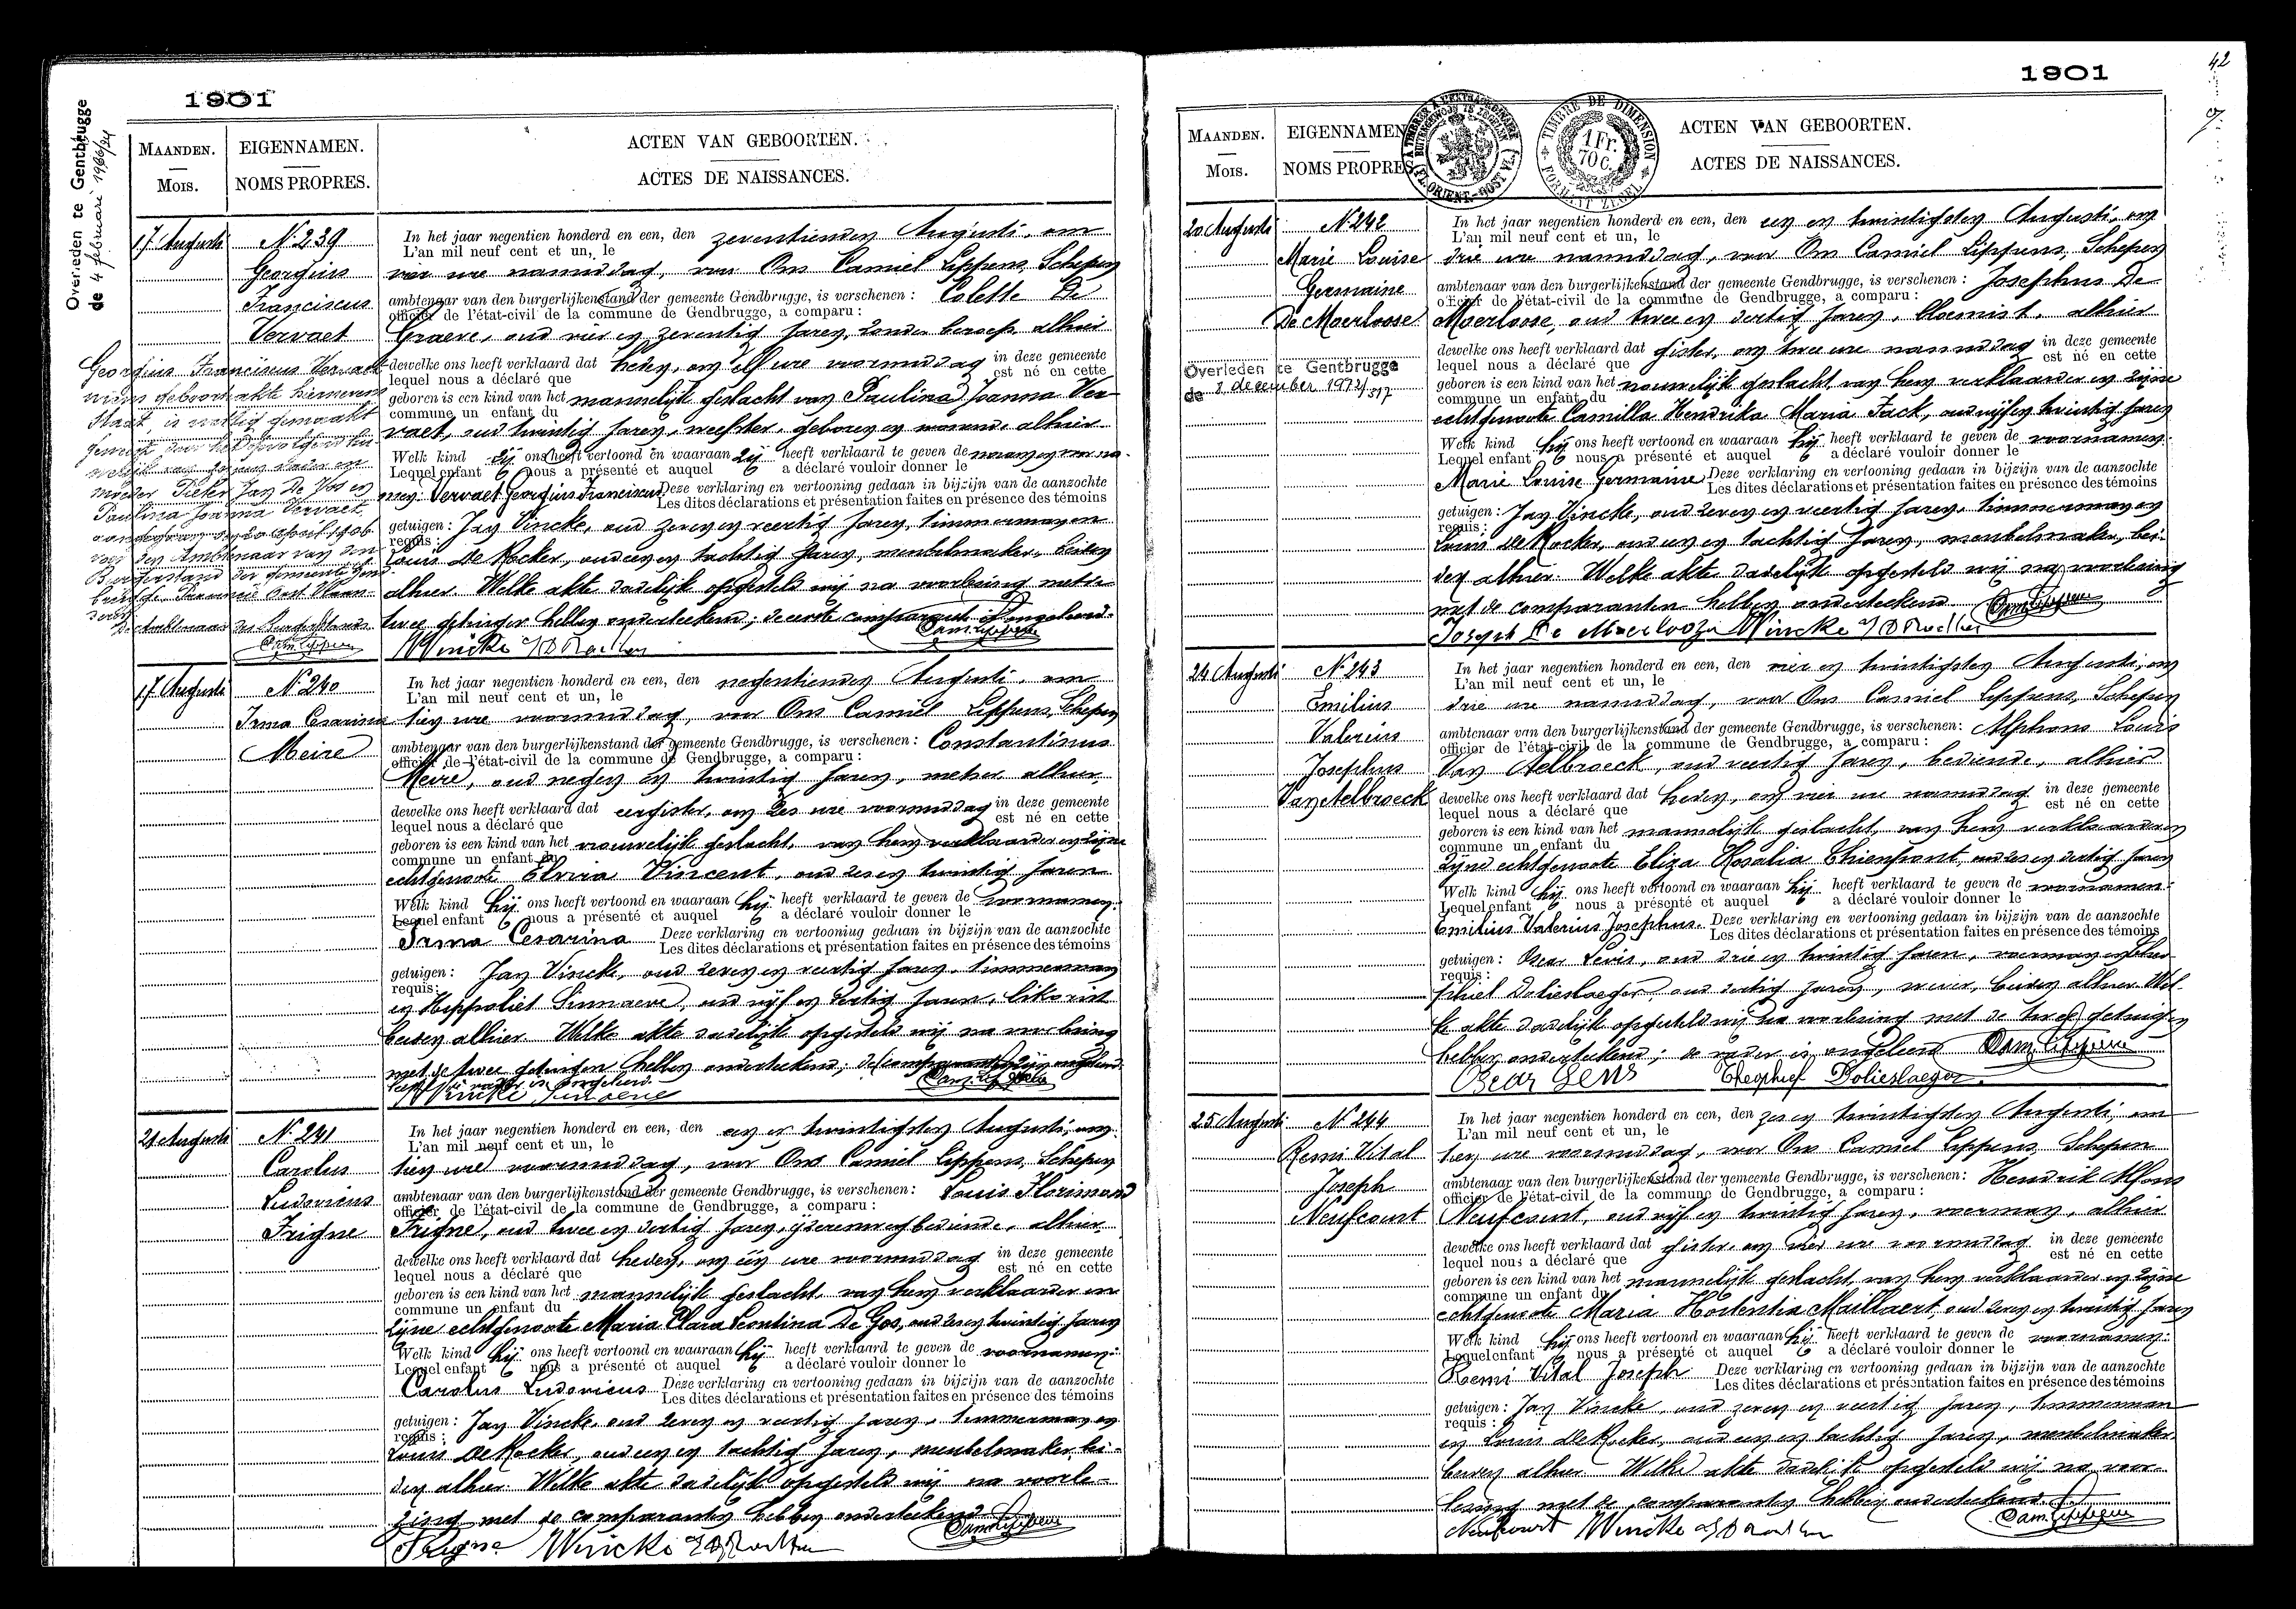 1901
Overleden te Gentbrugge
de 4 februari 1966/24
MAANDEN.
Mois.
EIGENNAMEN.
NOMS PROPRES.
ACTEN VAN GEBOORTEN.
ACTES DE NAISSANCES.
17 Augusti
N 239
Georgius
Franciscus
Vervaet
In het jaar negentien honderd en een, den zeventienden Augusti, om
L'an mil neuf cent et un, le
vier ure namiddag, voor Ons Camiel Lippens, Schepen
ambtenaar van den burgerlijkenstand der gemeente Gendbrugge, is verschenen : Colette De
officier de l'état-civil de la commune de Gendbrugge, a comparu :
Graeve, oud vier en zeventig jaren, zonder beroep alhier
dewelke ons heeft verklaard dat heden, om elf ure voormiddag in deze gemeente
lequel nous a déclaré que est né en cette
geboren is een kind van het mannelijk geslacht van Paulina Joanna Ver-
commune un enfant du
vaet, oud twintig jaren, weefster, geboren en wonend alhier
Welk kind zij ons heeft vertoond en waaraan zij heeft verklaard te geven de naam en voorna-
Lequel enfant nous a présenté et auquel a déclaré vouloir donner le
men: Vervaet Georgius Franciscus Deze verklaring en vertooning gedaan in bijzijn van de aanzochte
Les dites déclarations et présentation faites en présence des témoins
getuigen : Jan Vincke, oud zeven en veertig jaren, timmerman en
requis :
Louis De Kocker, oud een en tachtig jaren, meubelmaker, beiden
alhier. Welke akte dadelijk opgesteld wij na voorlezing met de
twee getuigen hebben onderteekend; de eerste comparant is ongeleerd.
Cam. Lippens
Georgius Franciscus Vervaet
wiens geboorteakte hiernevens
staat, is wettig gemaakt
moeder Pieter Jan De Vos en
Paulina Joanna Vervaet
voor den Ambtenaar van den
Burgerstand der gemeente Gend-
brugge, Provincie Oost Vlaan-
deren
De Ambtenaar des Burgerstands
Cam. Lippens
17 Augusti
N 240
Irma Cesarina
Meire
In het jaar negentien honderd en een, den negentienden Augusti, om
L'an mil neuf cent et un, le
tien ure voormiddag, voor Ons Camiel Lippens, Schepen
ambtenaar van den burgerlijkenstand der gemeente Gendbrugge, is verschenen : Constantinus
officier de l'état-civil de la commune de Gendbrugge, a comparu :
Meire, oud negen en twintig jaren, metser alhier
dewelke ons heeft verklaard dat eergister, om zes ure voormiddag in deze gemeente
lequel nous a déclaré que est né en cette
geboren is een kind van het vrouwelijk geslacht, van hem verklaarder en zijne
commune un enfant du
echtgenoote Elvira Vincent, oud zes en twintig jaren
Welk kind hij ons heeft vertoond en waaraan hij heeft verklaard te geven de voornamen:
Lequel enfant nous a présenté et auquel a déclaré vouloir donner le
Irma Cesarina Deze verklaring en vertooning gedaan in bijzijn van de aanzochte
Les dites déclarations et présentation faites en présence des témoins
getuigen : Jan Vincke, oud zeven en veertig jaren, timmerman
requis:
en Heppoliet Sinnaeve, oud vijf en dertig jaren, likorist
beiden alhier. Welke akte dadelijk opgesteld wij na voorlezing
met de twee getuigen hebben onderteekend;
Vincke Sinnaeve
21 Augusti
N 241
Carolus
Ludovicus
Frigne
In het jaar negentien honderd en een, den een en twintigsten Augusti, om
L'an mil neuf cent et un, le
tien ure voormiddag, voor Ons Camiel Lippens, Schepen
ambtenaar van den burgerlijkenstand der gemeente Gendbrugge, is verschenen : Louis Florimond
officier de l'état-civil de la commune de Gendbrugge, a comparu :
Frigne, oud twee en dertig jaren, ijzerenwegbediende, alhier
dewelke ons heeft verklaard dat heden, om één ure voormiddag in deze gemeente
lequel nous a déclaré que est né en cette
geboren is een kind van het mannelijk geslacht, van hem verklaarder en
commune un enfant du
zijne echtgenoote Maria Clara Leontina De Gos, oud zes en twintig jaren
Welk kind hij ons heeft vertoond en waaraan hij heeft verklaard te geven de voornamen:
Lequel enfant nous a présenté et auquel a déclaré vouloir donner le
Carolus Ludovicus Deze verklaring en vertooning gedaan in bijzijn van de aanzochte
Les dites déclarations et présentation faites en présence des témoins
getuigen : Jan Vincke, oud zeven en veertig jaren, timmerman en
requis :
Louis De Kocker, oud een en tachtig jaren, meubelmaker, bei-
den alhier. Welke akte dadelijk opgesteld wij na voorle-
zing met de comparanten hebben onderteekend
Cam. Lippens
Frigne Vincke
1901
42
MAANDEN.
Mois.
EIGENNAMEN.
NOMS PROPRES
TIMBRE DE DIMENSION
1 Fr.
70 C.
ACTEN VAN GEBOORTEN.
ACTES DE NAISSANCES.
20 Augusti
N 242
Marie Louise
Germaine
De Moerloose
Overleden te Gentbrugge
de 8 december 1972/317
In het jaar negentien honderd en een, den een en twintigsten Augusti, om
L'an mil neuf cent et un, le
drie ure namiddag, voor Ons Camiel Lippens, Schepen
ambtenaar van den burgerlijkenstand der gemeente Gendbrugge, is verschenen : Josephus De
officier de l'état-civil de la commune de Gendbrugge, a comparu :
Moerloose, oud twee en dertig jaren, bloemist, alhier
dewelke ons heeft verklaard dat gister, om twee ure namiddag in deze gemeente
lequel nous a déclaré que est né en cette
geboren is een kind van het vrouwelijk geslacht van hem verklaarder en zijne
commune un enfant du
echtgenoote Camilla Hendrika Maria Fack, oud vijf en twintig jaren
Welk kind hij ons heeft vertoond en waaraan hij heeft verklaard te geven de voornamen:
Lequel enfant nous a présenté et auquel a déclaré vouloir donner le
Marie Louise Germaine Deze verklaring en vertooning gedaan in bijzijn van de aanzochte
Les dites déclarations et présentation faites en présence des témoins
getuigen : Jan Vincke, oud zeven en veertig jaren, timmerman en
requis :
Louis De Kocker, oud een en tachtig jaren, meubelmaker, bei-
den alhier. Welke akte dadelijk opgesteld wij na voorlezing
met de comparanten hebben onderteekend.
Cam. Lippens
Joseph De Moerlooze Vincke
24 Augusti
N 243
Emilius
Valerius
Josephus
Van Aelbroeck
In het jaar negentien honderd en een, den vier en twintigsten Augusti, om
L'an mil neuf cent et un, le
drie ure namiddag, voor Ons Camiel Lippens, Schepen
ambtenaar van den burgerlijkenstand der gemeente Gendbrugge, is verschenen: Alphons Louis
officier de l'état-civil de la commune de Gendbrugge, a comparu :
Van Aelbroeck, oud veertig jaren, bediende, alhier
dewelke ons heeft verklaard dat heden, om vier ure namiddag in deze gemeente
lequel nous a déclaré que est né en cette
geboren is een kind van het mannelijk geslacht, van hem verklaarder en
commune un enfant du
zijne echtgenoote Eliza Rosalia Thienpont, oud zes en dertig jaren
Welk kind hij ons heeft vertoond en waaraan hij heeft verklaard te geven de voornamen:
Lequel enfant nous a présenté et auquel a déclaré vouloir donner le
Emilius Valerius Josephus. Deze verklaring en vertooning gedaan in bijzijn van de aanzochte
Les dites déclarations et présentation faites en présence des témoins
getuigen : Oscar oud drie en twintig jaren, voerman en Theo-
requis :
phiel Dolieslaeger, oud dertig jaren, wever, beiden alhier. Wel-
ke akte dadelijk opgesteld wij na voorlezing met de twee getuigen
hebben onderteekend; de vader is ongeleerd Cam. Lippens
Oscar Theophiel Dolieslaeger.
25 Augusti
N 244
Remi Vital
Joseph
Neufcourt
In het jaar negentien honderd en een, den zes en twintigsten Augusti, om
L'an mil neuf cent et un, le
tien ure voormiddag, voor Ons Camiel Lippens, Schepen
ambtenaar van den burgerlijkenstand der gemeente Gendbrugge, is verschenen: Hendrik Alfons
officier de l'état-civil de la commune de Gendbrugge, a comparu :
Neufcourt, oud vijf en twintig jaren, voerman, alhier
dewelke ons heeft verklaard dat gister, om vier ure voormiddag in deze gemeente
lequel nous a déclaré que est né en cette
geboren is een kind van het mannelijk geslacht, van hem verklaarder en zijne
commune un enfant du
echtgenoote Maria Hortentia Maillaert, oud zeven en twintig jaren
Welk kind hij ons heeft vertoond en waaraan hij heeft verklaard te geven de voornamen:
Lequel enfant nous a présenté et auquel a déclaré vouloir donner le
Remi Vital Joseph Deze verklaring en vertooning gedaan in bijzijn van de aanzochte
Les dites déclarations et présentation faites en présence des témoins
getuigen : Jan Vincke, oud zeven en veertig jaren, timmerman
requis :
en Louis De Kocker, oud een en tachtig jaren, meubelmaker
beiden alhier. Welke akte dadelijk opgesteld wij na voor-
lezing met de comparanten hebben onderteekend.
Cam. Lippens
Neufcourt Vincke